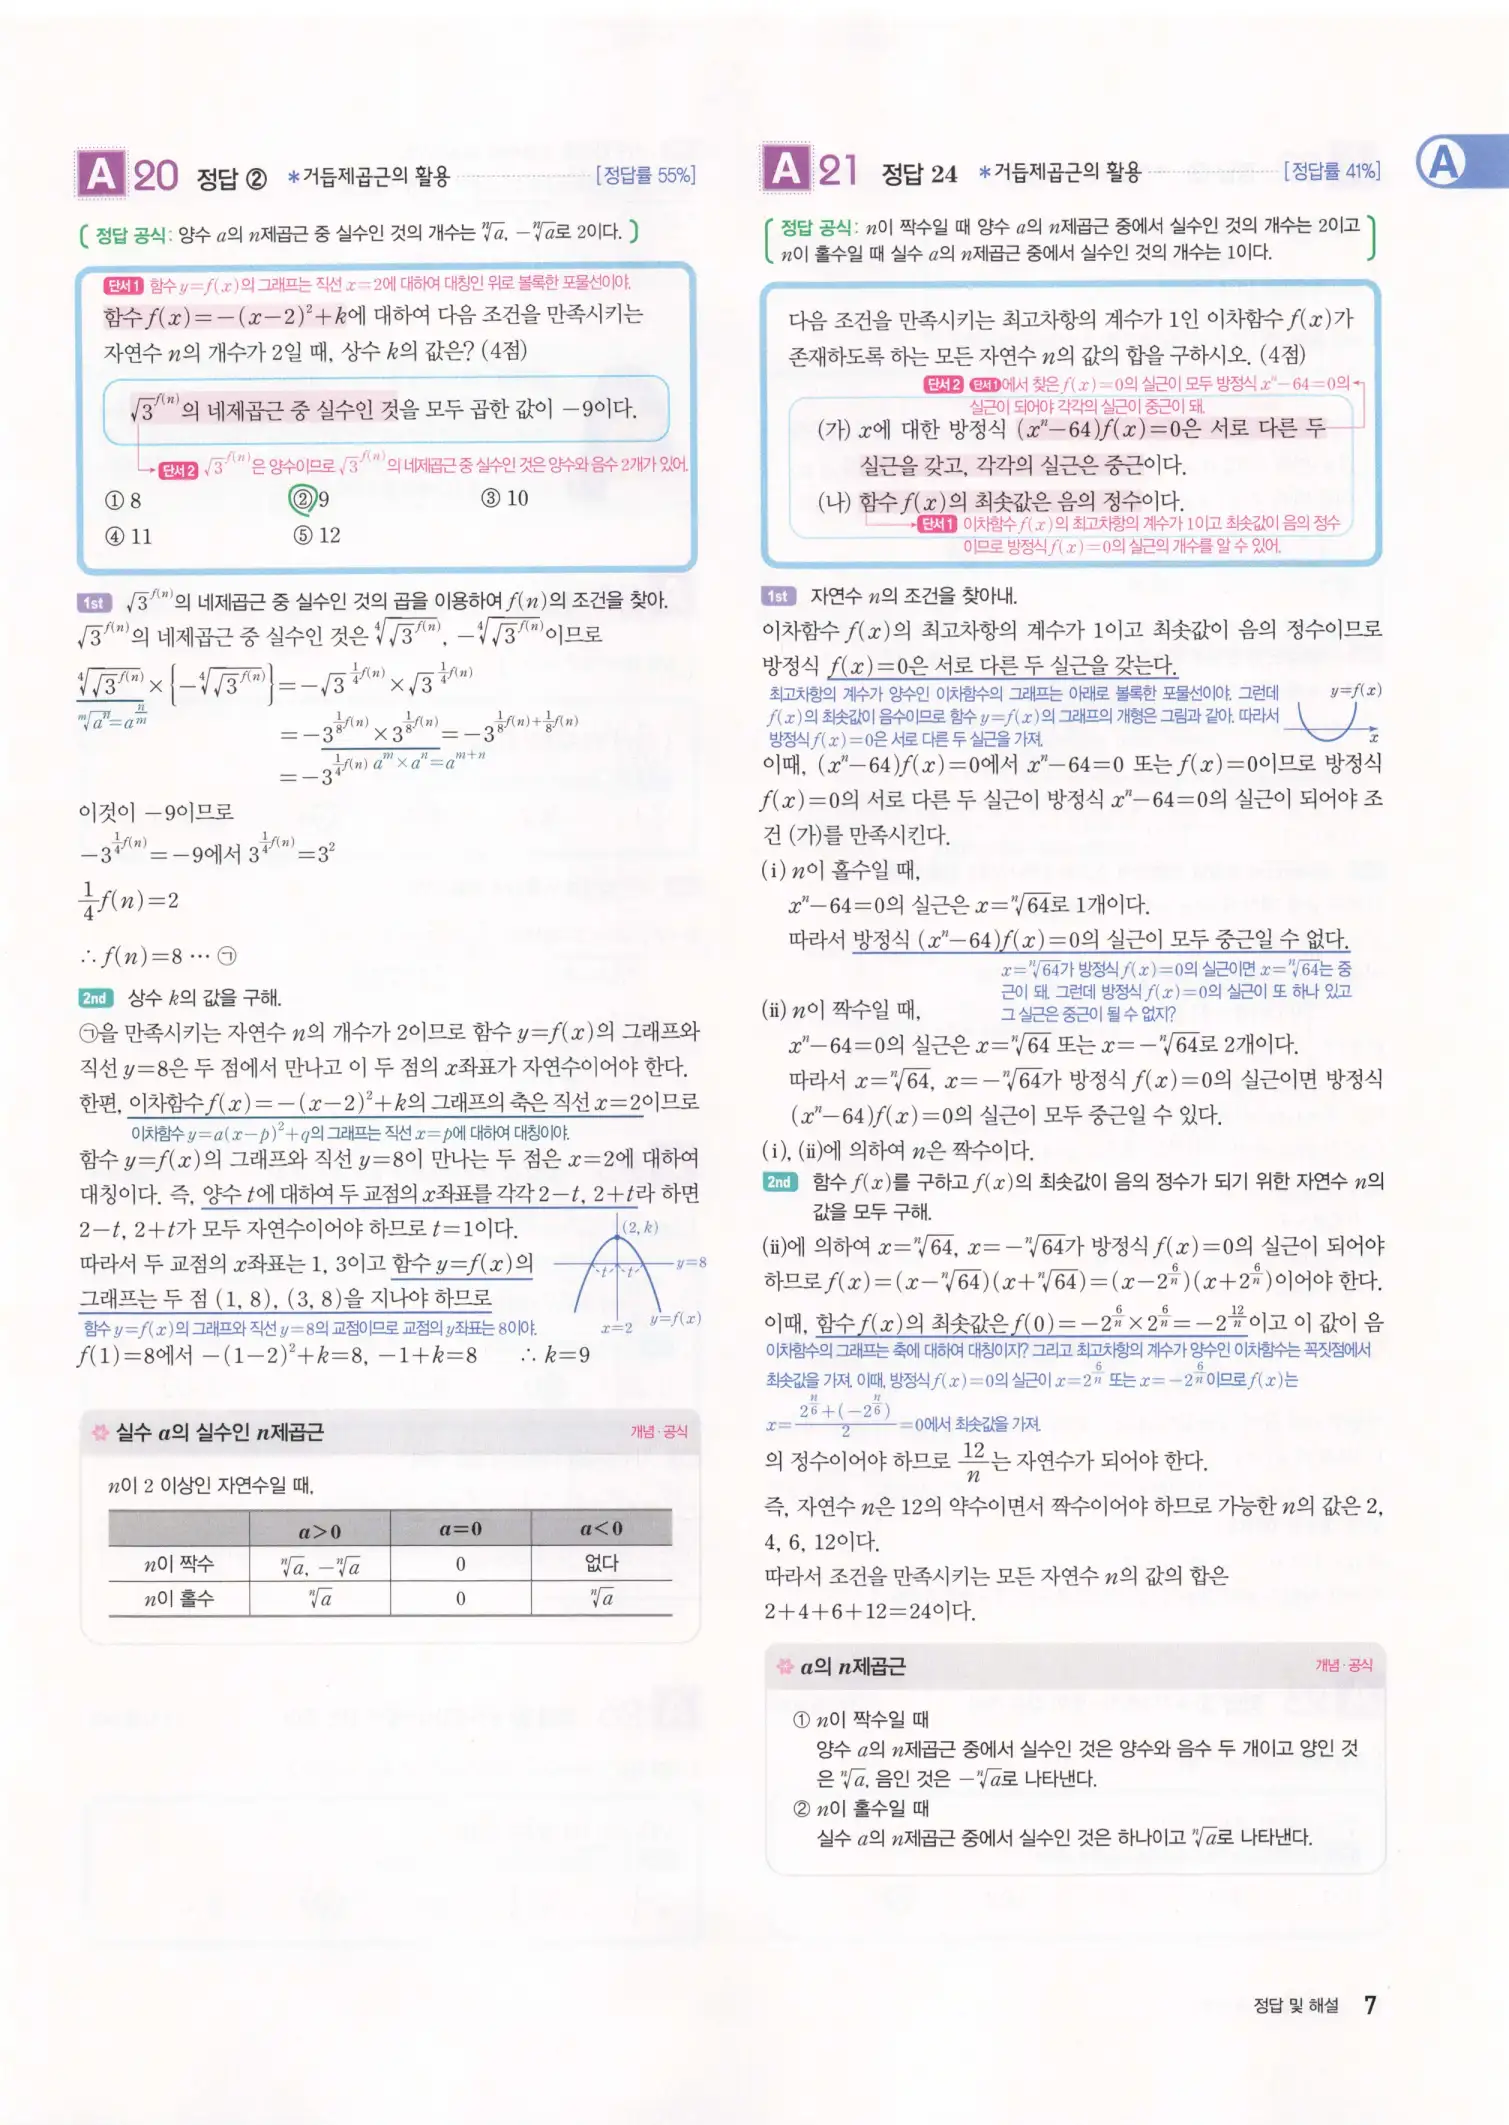 A 20 정답 ② *거듭제곱근의 활용 [정답률 55%]
( 정답 공식: 양수 a의 n제곱근 중 실수인 것의 개수는 ⁿ√a, −ⁿ√a로 2이다. )
단서1 함수 y=f(x)의 그래프는 직선 x=2에 대하여 대칭인 위로 볼록한 포물선이야.
함수 f(x)=−(x−2)²+k에 대하여 다음 조건을 만족시키는
자연수 n의 개수가 2일 때, 상수 k의 값은? (4점)
√3^{f(n)}의 네제곱근 중 실수인 것을 모두 곱한 값이 −9이다.
단서2 √3^{f(n)}은 양수이므로 √3^{f(n)}의 네제곱근 중 실수인 것은 양수와 음수 2개가 있어.
① 8 ② 9 ③ 10
④ 11 ⑤ 12
1st √3^{f(n)}의 네제곱근 중 실수인 것의 곱을 이용하여 f(n)의 조건을 찾아.
√3^{f(n)}의 네제곱근 중 실수인 것은 ⁴√(√3^{f(n)}), −⁴√(√3^{f(n)})이므로
⁴√(√3^{f(n)})×{−⁴√(√3^{f(n)})}=−√3^{¼f(n)}×√3^{¼f(n)}
ᵐ√aⁿ=a^{n/m}
=−3^{⅛f(n)}×3^{⅛f(n)}=−3^{⅛f(n)+⅛f(n)}
=−3^{¼f(n)} a^m×a^n=a^{m+n}
이것이 −9이므로
−3^{¼f(n)}=−9에서 3^{¼f(n)}=3²
¼f(n)=2
∴ f(n)=8 ⋯ ㉠
2nd 상수 k의 값을 구해.
㉠을 만족시키는 자연수 n의 개수가 2이므로 함수 y=f(x)의 그래프와
직선 y=8은 두 점에서 만나고 이 두 점의 x좌표가 자연수이어야 한다.
한편, 이차함수 f(x)=−(x−2)²+k의 그래프의 축은 직선 x=2이므로
이차함수 y=a(x−p)²+q의 그래프는 직선 x=p에 대하여 대칭이야.
함수 y=f(x)의 그래프와 직선 y=8이 만나는 두 점은 x=2에 대하여
대칭이다. 즉, 양수 t에 대하여 두 교점의 x좌표를 각각 2−t, 2+t라 하면
2−t, 2+t가 모두 자연수이어야 하므로 t=1이다.
따라서 두 교점의 x좌표는 1, 3이고 함수 y=f(x)의
그래프는 두 점 (1, 8), (3, 8)을 지나야 하므로
함수 y=f(x)의 그래프와 직선 y=8의 교점이므로 교점의 y좌표는 8이야.
f(1)=8에서 −(1−2)²+k=8, −1+k=8 ∴ k=9
(2, k)
y=8
t t
x=2
y=f(x)
실수 a의 실수인 n제곱근 개념·공식
n이 2 이상인 자연수일 때,
a>0 a=0 a<0
n이 짝수 ⁿ√a, −ⁿ√a 0 없다
n이 홀수 ⁿ√a 0 ⁿ√a
A 21 정답 24 *거듭제곱근의 활용 [정답률 41%]
A
정답 공식: n이 짝수일 때 양수 a의 n제곱근 중에서 실수인 것의 개수는 2이고
n이 홀수일 때 실수 a의 n제곱근 중에서 실수인 것의 개수는 1이다.
다음 조건을 만족시키는 최고차항의 계수가 1인 이차함수 f(x)가
존재하도록 하는 모든 자연수 n의 값의 합을 구하시오. (4점)
단서2 단서1에서 찾은 f(x)=0의 실근이 모두 방정식 xⁿ−64=0의
실근이 되어야 각각의 실근이 중근이 돼.
(가) x에 대한 방정식 (xⁿ−64)f(x)=0은 서로 다른 두
실근을 갖고, 각각의 실근은 중근이다.
(나) 함수 f(x)의 최솟값은 음의 정수이다.
단서1 이차함수 f(x)의 최고차항의 계수가 1이고 최솟값이 음의 정수
이므로 방정식 f(x)=0의 실근의 개수를 알 수 있어.
1st 자연수 n의 조건을 찾아내.
이차함수 f(x)의 최고차항의 계수가 1이고 최솟값이 음의 정수이므로
방정식 f(x)=0은 서로 다른 두 실근을 갖는다.
최고차항의 계수가 양수인 이차함수의 그래프는 아래로 볼록한 포물선이야. 그런데
f(x)의 최솟값이 음수이므로 함수 y=f(x)의 그래프의 개형은 그림과 같아. 따라서
방정식 f(x)=0은 서로 다른 두 실근을 가져.
y=f(x)
x
이때, (xⁿ−64)f(x)=0에서 xⁿ−64=0 또는 f(x)=0이므로 방정식
f(x)=0의 서로 다른 두 실근이 방정식 xⁿ−64=0의 실근이 되어야 조
건 (가)를 만족시킨다.
(i) n이 홀수일 때,
xⁿ−64=0의 실근은 x=ⁿ√64로 1개이다.
따라서 방정식 (xⁿ−64)f(x)=0의 실근이 모두 중근일 수 없다.
x=ⁿ√64가 방정식 f(x)=0의 실근이면 x=ⁿ√64는 중
근이 돼. 그런데 방정식 f(x)=0의 실근이 또 하나 있고
그 실근은 중근이 될 수 없지?
(ii) n이 짝수일 때,
xⁿ−64=0의 실근은 x=ⁿ√64 또는 x=−ⁿ√64로 2개이다.
따라서 x=ⁿ√64, x=−ⁿ√64가 방정식 f(x)=0의 실근이면 방정식
(xⁿ−64)f(x)=0의 실근이 모두 중근일 수 있다.
(i), (ii)에 의하여 n은 짝수이다.
2nd 함수 f(x)를 구하고 f(x)의 최솟값이 음의 정수가 되기 위한 자연수 n의
값을 모두 구해.
(ii)에 의하여 x=ⁿ√64, x=−ⁿ√64가 방정식 f(x)=0의 실근이 되어야
하므로 f(x)=(x−ⁿ√64)(x+ⁿ√64)=(x−2^{6/n})(x+2^{6/n})이어야 한다.
이때, 함수 f(x)의 최솟값은 f(0)=−2^{6/n}×2^{6/n}=−2^{12/n}이고 이 값이 음
이차함수의 그래프는 축에 대하여 대칭이지? 그리고 최고차항의 계수가 양수인 이차함수는 꼭짓점에서
최솟값을 가져. 이때, 방정식 f(x)=0의 실근이 x=2^{6/n} 또는 x=−2^{6/n}이므로 f(x)는
x=(2^{n/6}+(−2^{n/6}))/2=0에서 최솟값을 가져.
의 정수이어야 하므로 12/n는 자연수가 되어야 한다.
즉, 자연수 n은 12의 약수이면서 짝수이어야 하므로 가능한 n의 값은 2,
4, 6, 12이다.
따라서 조건을 만족시키는 모든 자연수 n의 값의 합은
2+4+6+12=24이다.
a의 n제곱근 개념·공식
① n이 짝수일 때
양수 a의 n제곱근 중에서 실수인 것은 양수와 음수 두 개이고 양인 것
은 ⁿ√a, 음인 것은 −ⁿ√a로 나타낸다.
② n이 홀수일 때
실수 a의 n제곱근 중에서 실수인 것은 하나이고 ⁿ√a로 나타낸다.
정답 및 해설 7